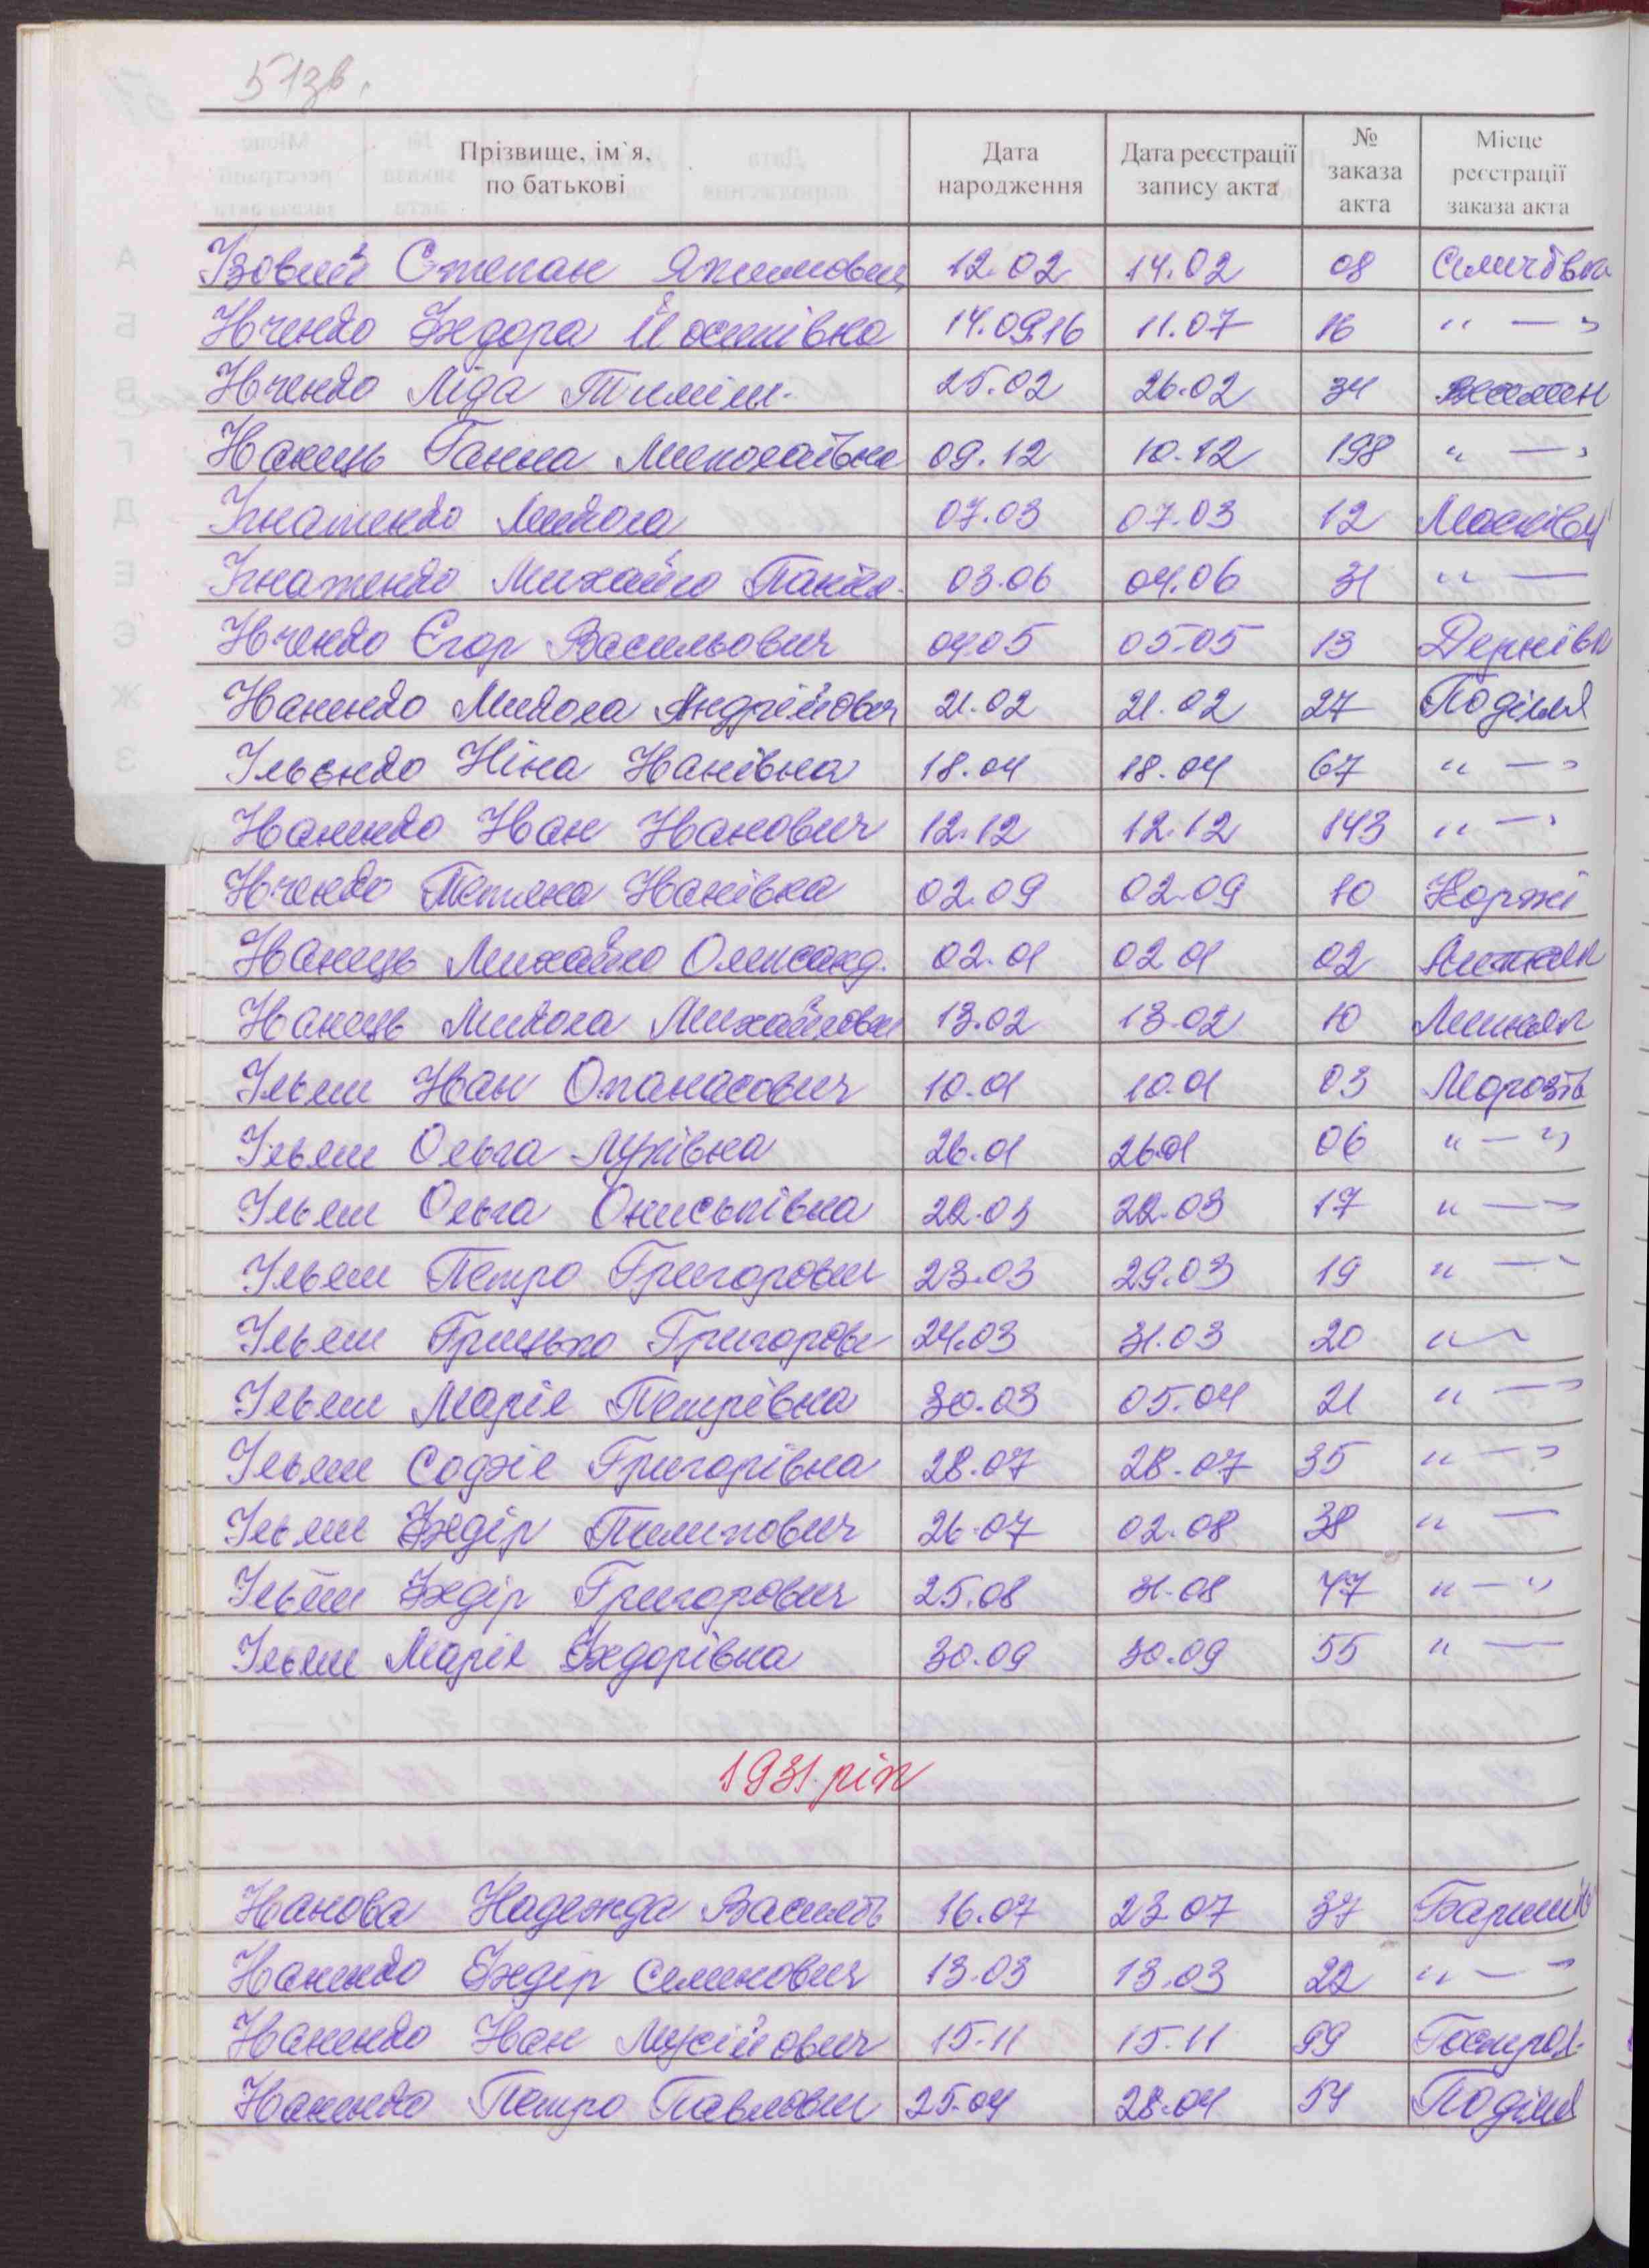 51зв.
Прізвище, ім`я, по батькові Дата народження Дата реєстрації запису акта № заказа акта Місце реєстрації заказа акта
Ізовий Степан Якимович 12.02 14.02 08 Селичівка
Івченко Федора Йосипівна 14.09.16 11.07 16 " — "
Івченко Ліда Тиміш. 25.02 26.02 34
Іванець Ганна Миколаївна 09.12 10.12 198 " — "
Ігнатенко Микола 07.03 07.03 12 Масківці
Ігнатенко Михайло Панко. 03.06 04.06 31 " —
Івченко Єгор Васильович 04.05 05.05 13 Дернівк
Іваненко Микола Андрійович 21.02 21.02 27 Поділля
Ільєнко Ніна Іванівна 18.04 18.04 67 " — "
Іваненко Іван Іванович 12.12 12.12 143 " — "
Івченко Тетяна Іванівна 02.09 02.09 10 Коржі
Іванець Михайло Олександ. 02.01 02 01 02
Іванець Микола Михайлович 13.02 13.02 10
Ільяш Іван Опанасович 10.01 10.01 03 Морозів
Ільяш Ольга Луківна 26.01 26.01 06 " — "
Ільяш Ольга Ониськівна 22.03 22.03 17 " — "
Ільяш Петро Григорович 23.03 29.03 19 " — "
Ільяш Грицько Григорови 24.03 31.03 20 " —
Ільяш Марія Петрівна 30.03 05.04 21 " — "
Ільяш Софія Григорівна 28.07 28.07 35 " — "
Ільяш Федір Пилипович 26.07 02.08 38 " —
Ільяш Федір Григорович 25.08 31.08 47 " — "
Ільяш Марія Федорівна 30.09 30.09 55 " —
1931 рік
Іванова Надежда Василів 16.07 23.07 37 Баришів
Іваненко Федір Семенович 13.03 13.03 22 " — "
Іваненко Іван Мусійович 15.11 15.11 99 Гостро.
Іваненко Петро Павлович 25.04 28.04 54 Поділля
А
Б
В
Г
Д
Е
Є
Ж
З